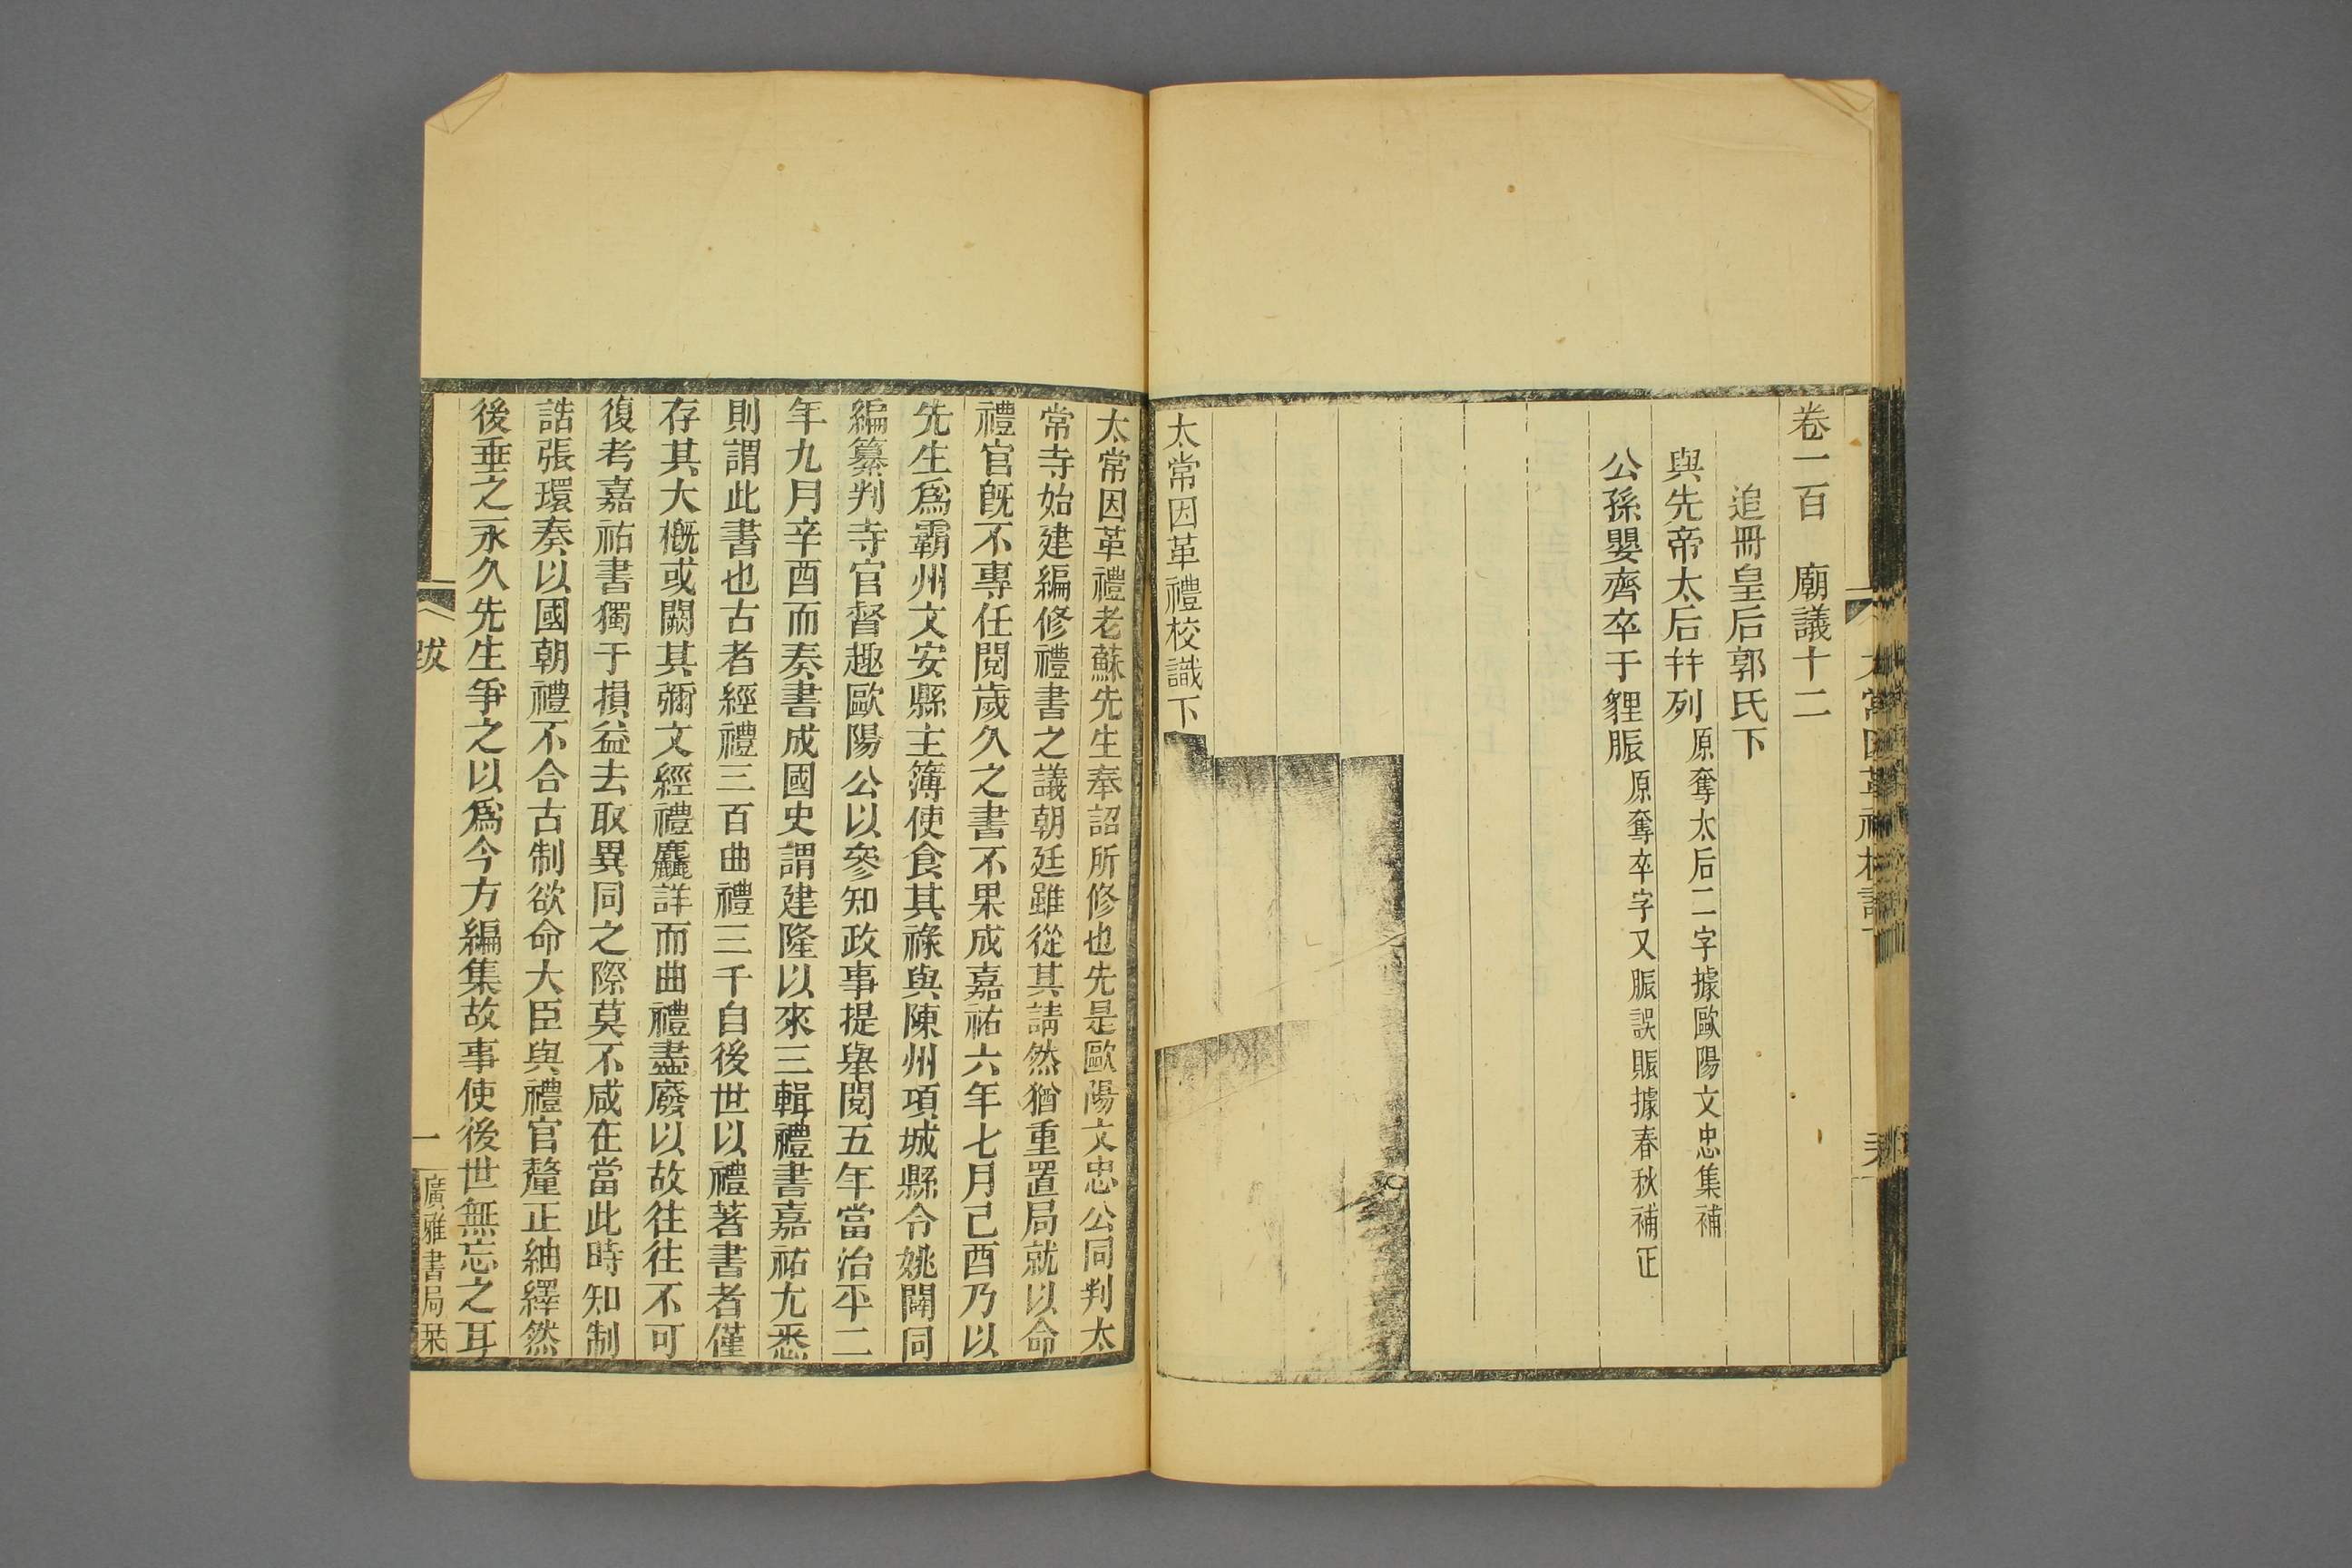 卷一百　廟議十二
追冊皇后郭氏下
與先帝太后幷列原奪太后二字據歐陽文忠集補
公孫嬰齊卒于貍脤原奪卒字又脤誤賑據春秋補正
太常因革禮校識下
太常因革禮老蘇先生奉詔所修也先是歐陽文忠公同判太
常寺始建編修禮書之議朝廷雖從其請然猶重置局就以命
禮官旣不專任閱歲久之書不果成嘉祐六年七月己酉乃以
先生爲霸州文安縣主簿使食其祿與陳州項城縣令姚闢同
編纂判寺官督趣歐陽公以參知政事提舉閱五年當治平二
年九月辛酉而奏書成國史謂建隆以來三輯禮書嘉祐尤悉
則謂此書也古者經禮三百曲禮三千自後世以禮著書者僅
存其大槪或闕其彌文經禮麤詳而曲禮盡廢以故往往不可
復考嘉祐書獨于損益去取異同之際莫不咸在當此時知制
誥張環奏以國朝禮不合古制欲命大臣與禮官釐正紬繹然
後垂之永久先生爭之以爲今方編集故事使後世無忘之耳
跋
一
廣雅書局栞